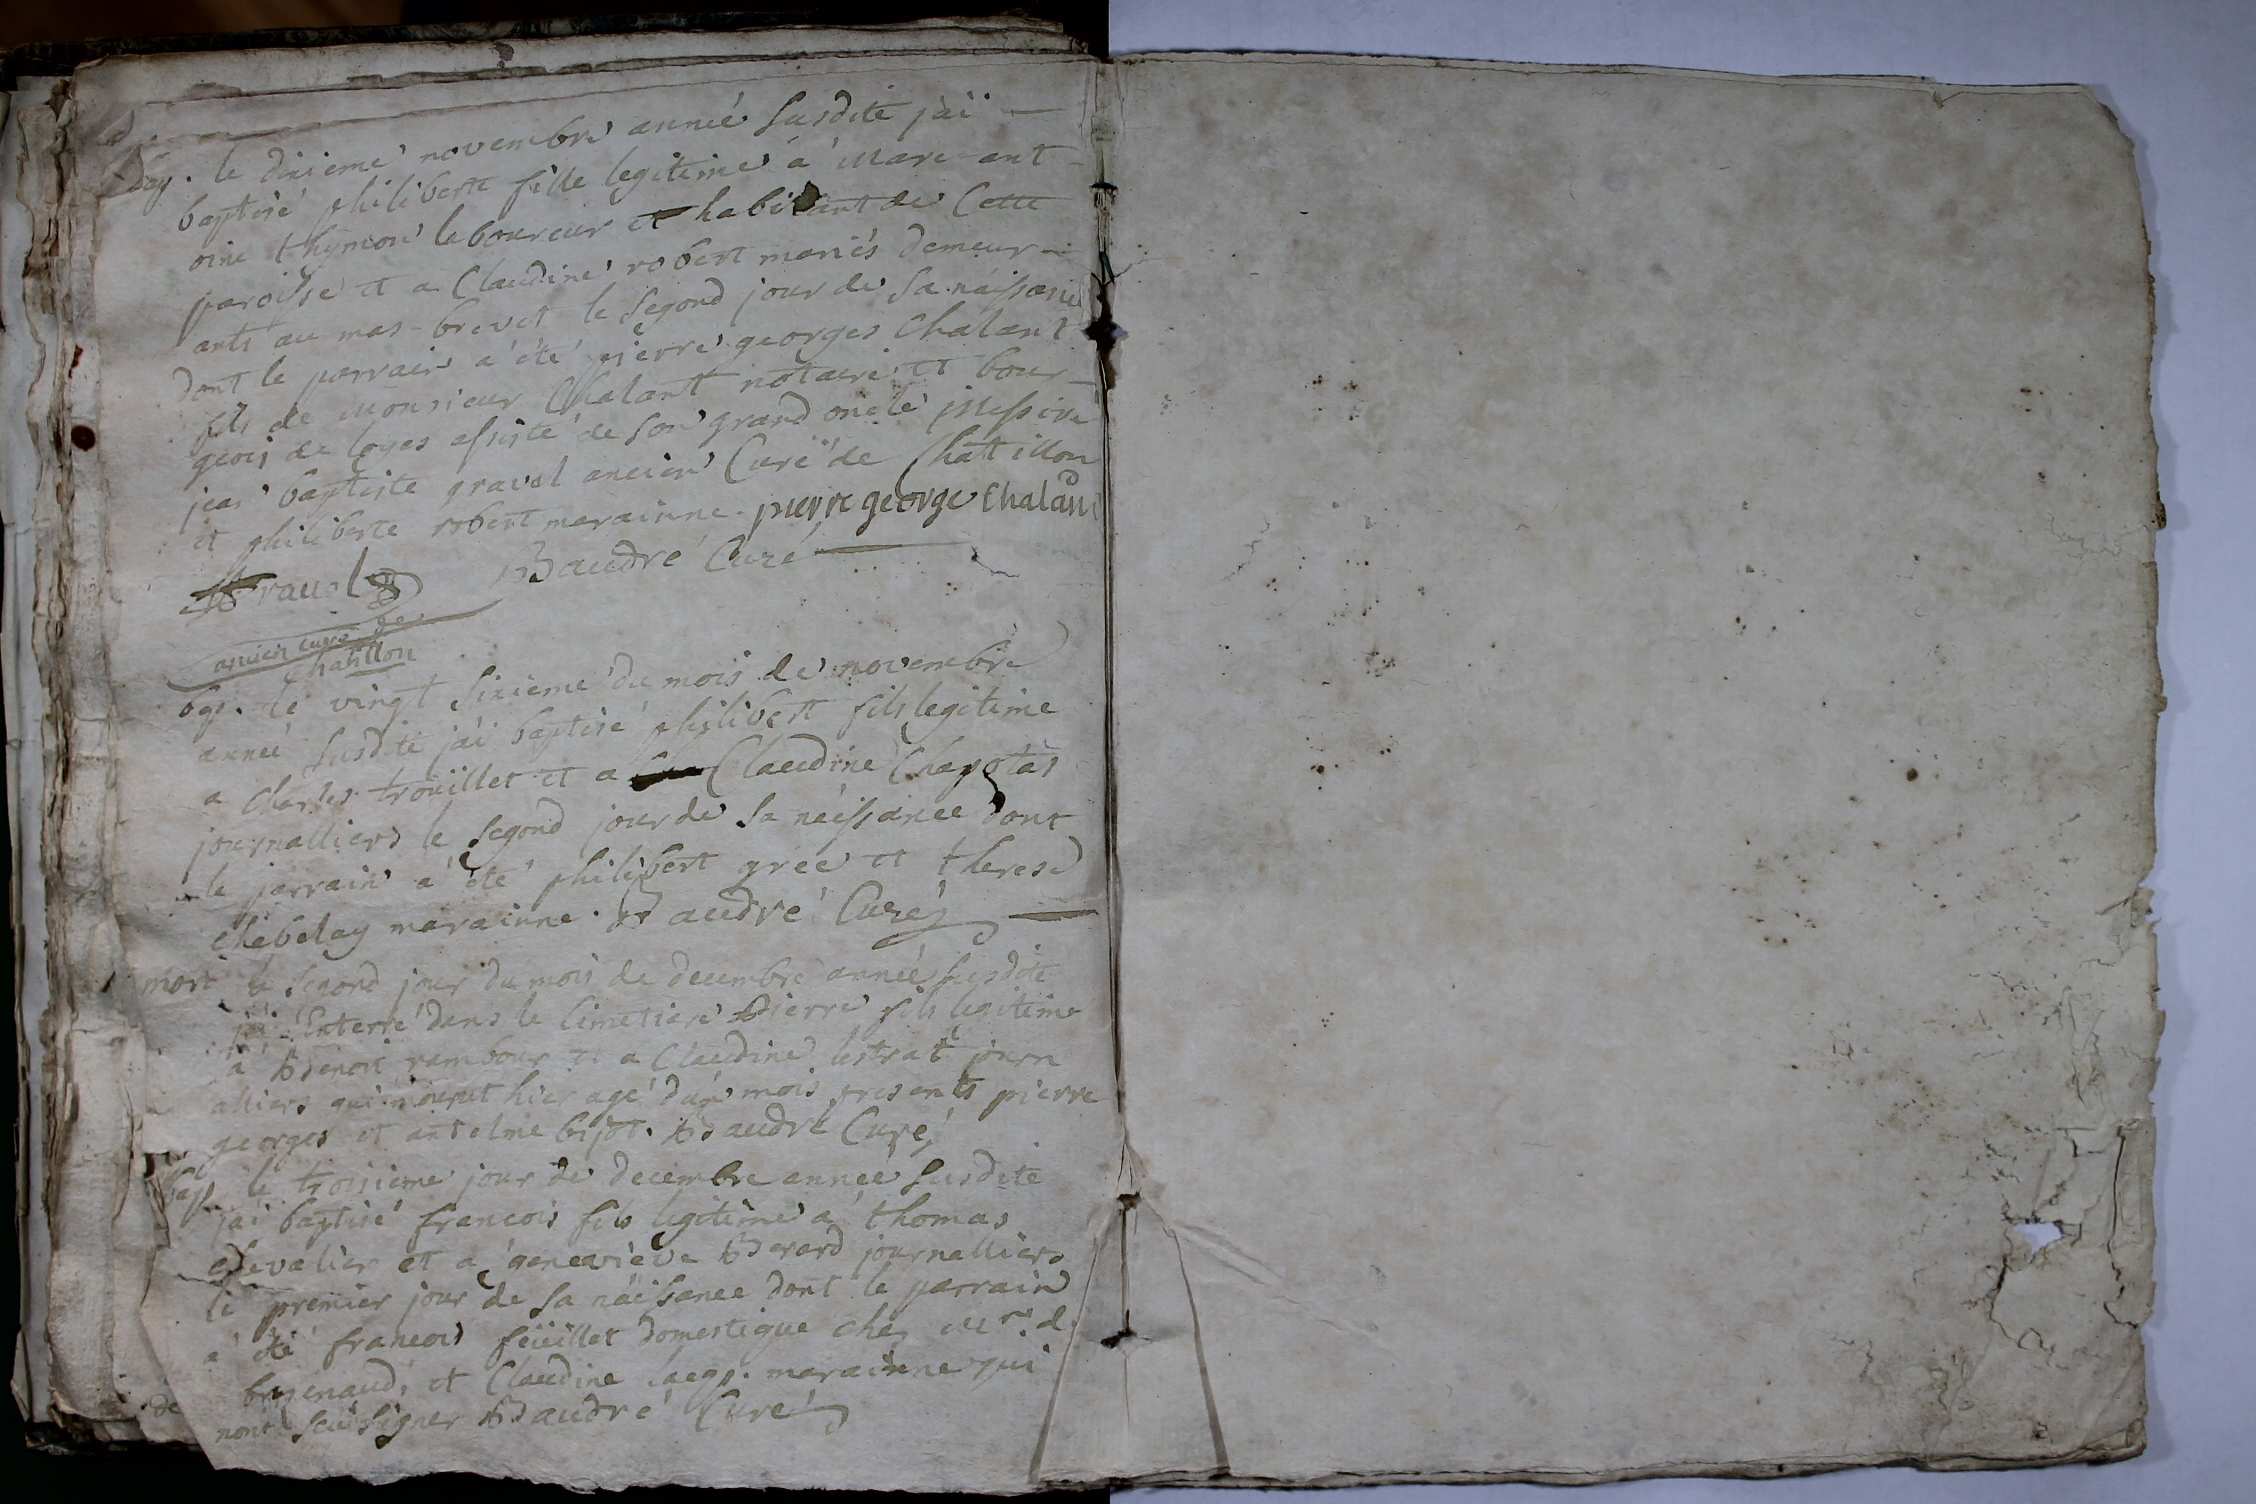 bap. le dixieme novembre année susdite j'ai
baptisé philiberte fille legitime a marc-ant-
oine thymon laboureur et habitant de Cette
paroisse et a Claudine robert mariés demeur-
ants au mas-brevet le segond jour de sa naissance
dont le parrain a été pierre georges Chalant
fils de Monsieur Chalant notaire et bour-
geois de loyes assisté de son grand oncle messire
jean baptiste gravel ancien Curé de Chattillon
et philiberte robert marainne. pierre george Chaland
Baudré Curé
ancien curé de
chatillon
bap. le vingt sixieme du mois de novembre
année susdite j'ai baptisé philibert fils legitime
a Charles trouillet et a Claudine Chapotas
journalliers le segond jour de sa naissance dont
le parrain a été philibert gree et therese
chebelay marainne. Baudré Curé
mort le segond jour du mois de decembre année susdite
j'ai Enterré dans le Cimetiere pierre fils legitime
a Benoit rambour et a Claudine lestrat journ
alliers qui mourut hier agé d'un mois presents pierre
georges et antelme bijot. Baudré Curé
bap. le troisieme jour de decembre année susdite
j'ai baptisé francois fils legitime a thomas
chevalier et a genevieve Berard journalliers
le premier jour de sa naissance dont le parrain
a été francois feüillet domestique chez Mr. de
et Claudine marainne qui
n'ont sçu signer Baudré Curé